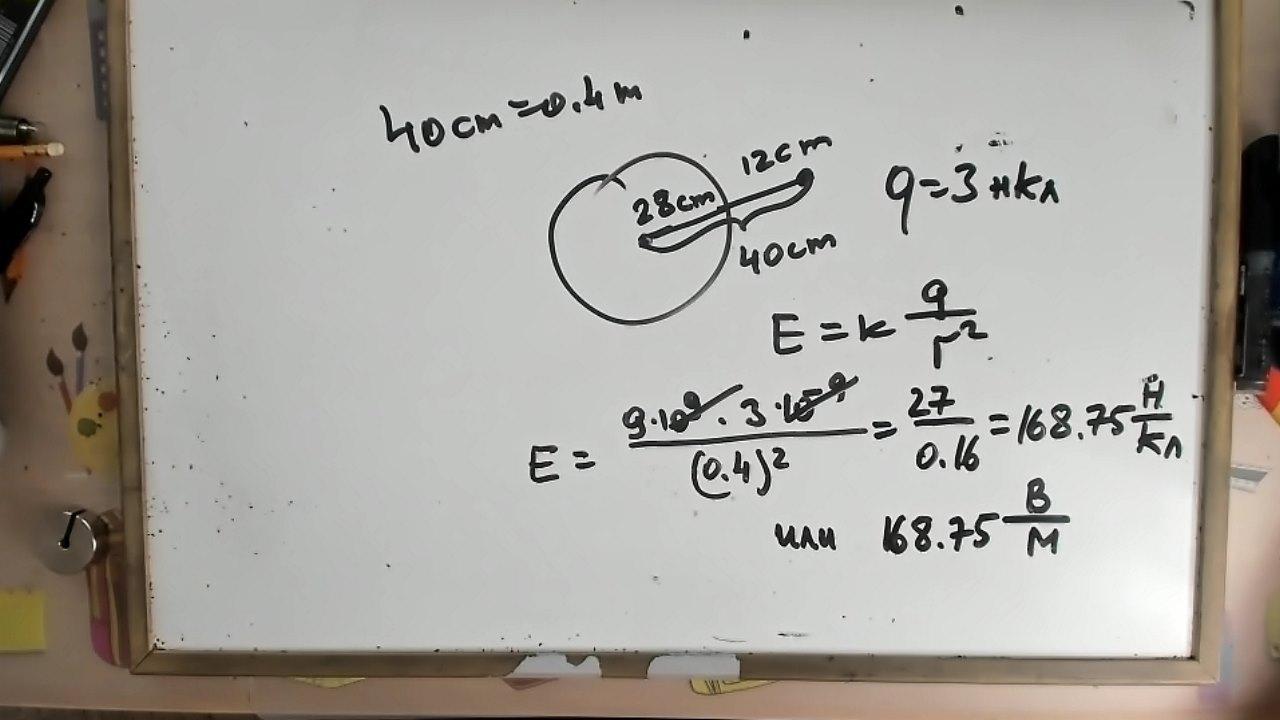 40cm=0.4m
12cm
28cm
40cm
q=3нКл
E=k q/r²
E= 9·10⁹·3·10⁻⁹/(0.4)² = 27/0.16 =168.75 Н/Кл
или 168.75 В/М